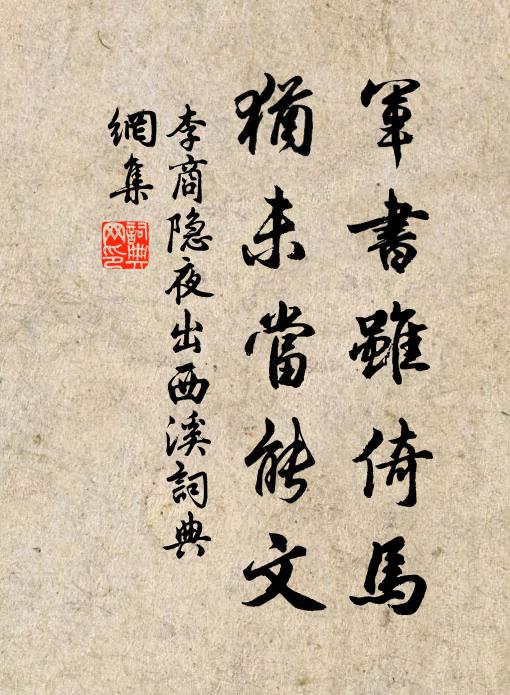 軍書雖倚馬
猶未當能文
李商隐夜出西溪詞典
網集
詞典
网印